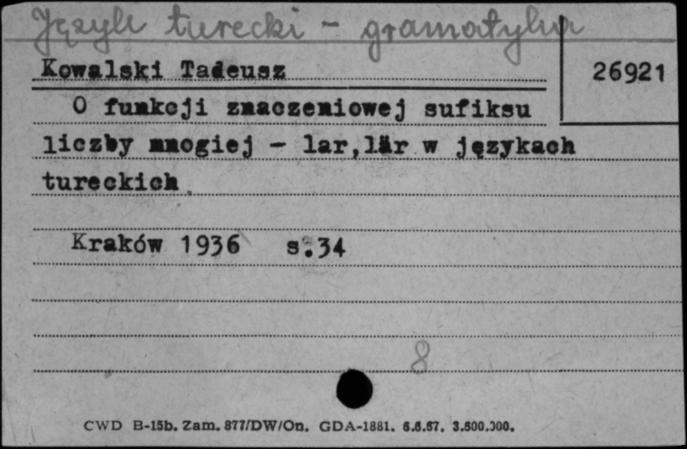 Język turecki - gramatyka
Kowalski Tadeusz
26921
O funkcji znaczeniowej sufiksu
liczby mnogiej - lar,lär w językach
tureckich
Kraków 1936 s.34
8
CWD B-15b. Zam. 877/DW/On. GDA-1881. 6.6.67. 3.500.000.